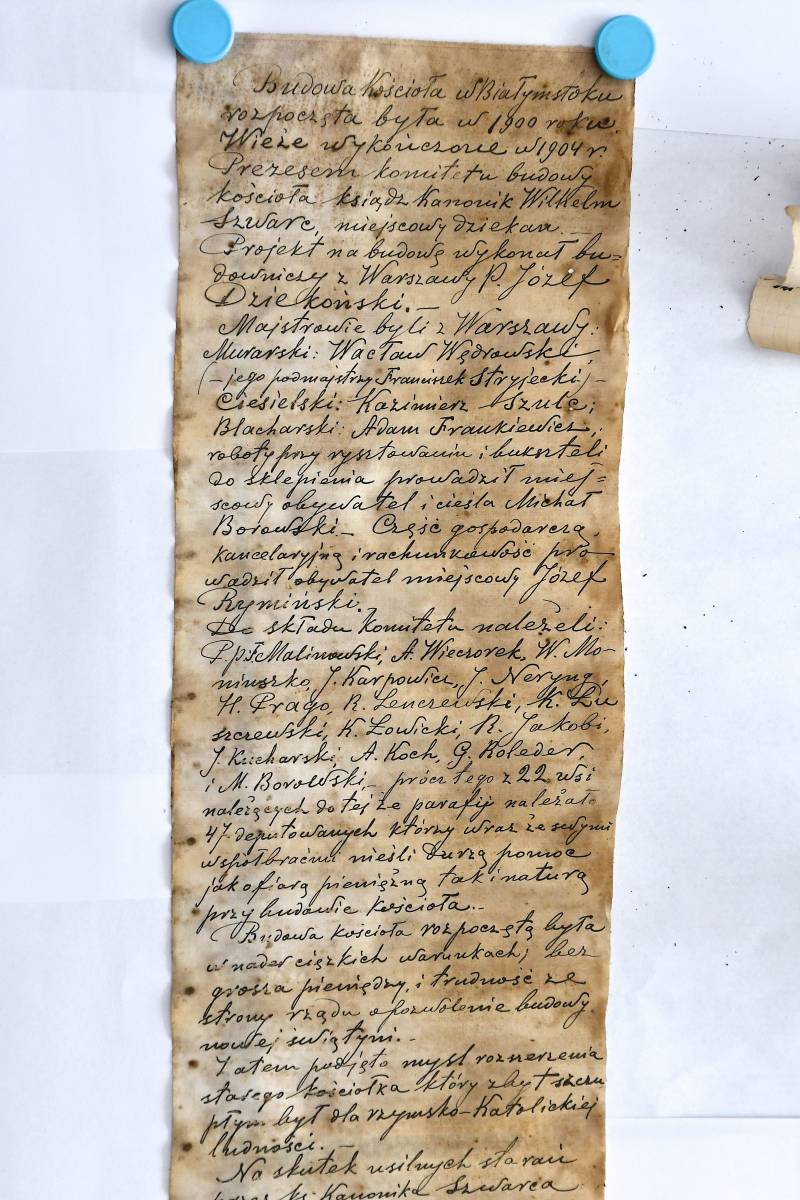 Budowa Kościoła w Białymstoku
rozpoczęta była w 1900 roku.
Wieże wykończone w 1904 r.
Prezesem komitetu budowy
kościoła ksiądz Kanonik Wilhelm
Szwarc, miejscowy dziekan. —
Projekt na budowę wykonał bu=
downiczy z Warszawy P. Józef
Dziekoński. —
Majstrowie byli z Warszawy:
Murarski: Wacław Wędrowski,
(— jego podmajstrzy Franciszek Stryjecki) —
Ciesielski: Kazimierz Szulc;
Blacharski: Adam Frankiewicz;
roboty przy rysztowaniu i buksteli
do sklepienia prowadził miej=
scowy obywatel i cieśla Michał
Borowski — Część gospodarczą,
kancelaryjną i rachunkowość pro
wadził obywatel miejscowy Józef
Rymiński.
Do składu Komitetu należeli:
P.P. F. Malinowski, A. Wieczorek, W. Mo-
niuszko, J. Karpowicz, J. Neryng,
H. Prago, R. Lenczewski, K. Łu
szczewski, K. Łowicki, R. Jakobi,
J. Kucharski, A. Koch, G. Roleder,
i M. Borowski — prócz tego z 22 wsi
należących do tej że parafji należało
47 deputowanych którzy wraz ze swymi
współbraćmi nieśli dużą pomoc
jak ofiarą pieniężną tak i naturą
przy budowie kościoła. —
Budowa kościoła rozpoczętą była
w nader ciężkich warunkach; bez
grosza pieniędzy, i trudność ze
strony rządu o pozwolenie budowy
nowej świątyni. —
Zatem podjęto myśl rozszerzenia
starego kościołka który zbyt szczu
płym był dla rzymsko-Katolickiej
ludności. —
Na skutek usilnych starań
przez ks. Kanonika Szwarca